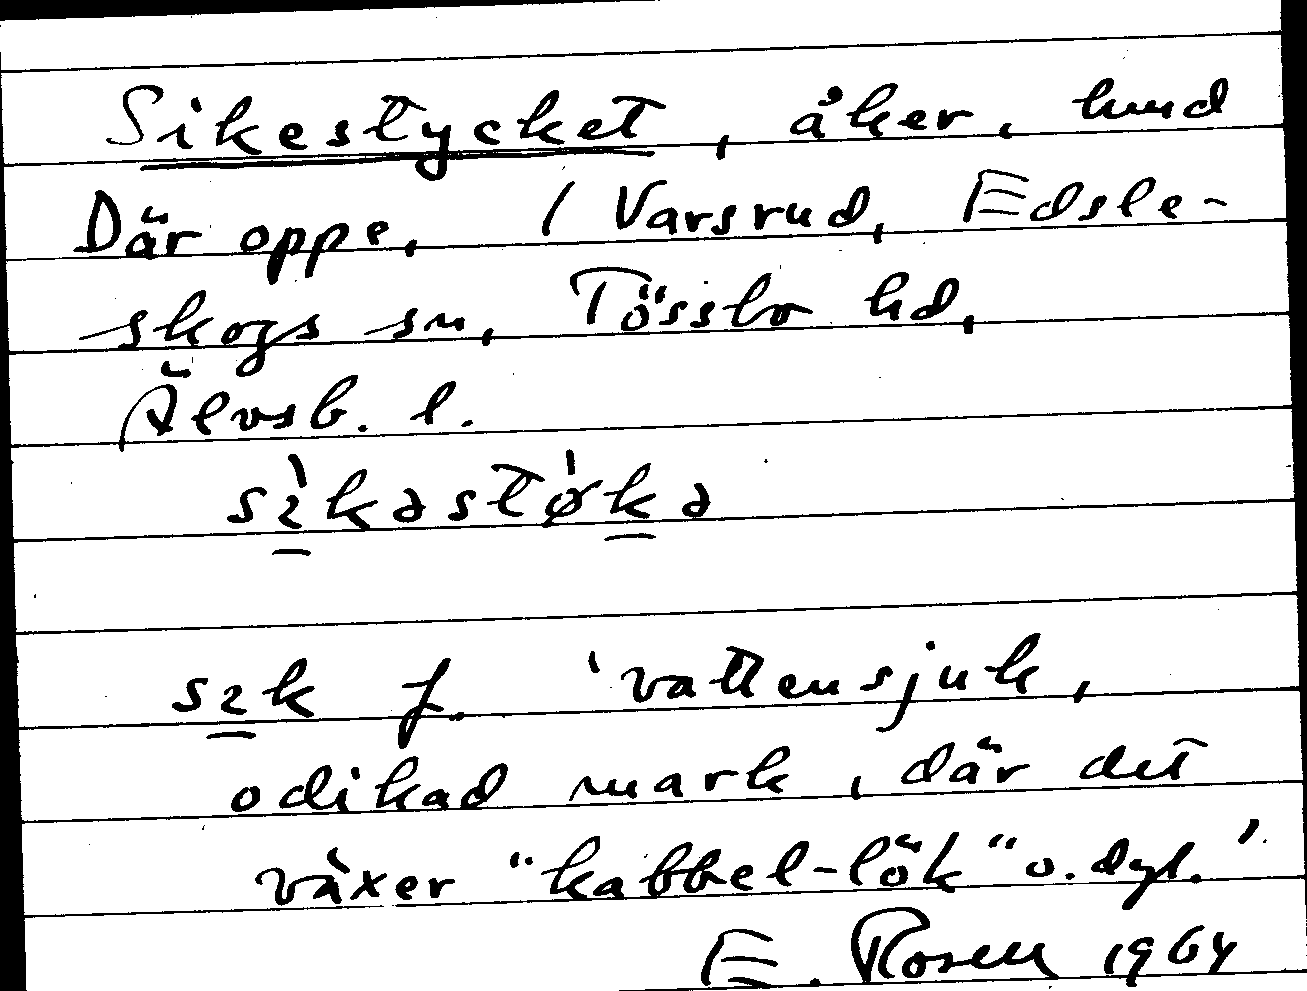 Sikestycket, åker, hmd
Där oppe, i Varsrud, Edsle-
skogs sn, Tössbo hd,
Älvsb. l.
sı̀kəstø̍kə
sık f. 'vattensjuk,
odikad mark, där det
växer "kabbel-lök" o. dyl.'
E. Rosell 1964